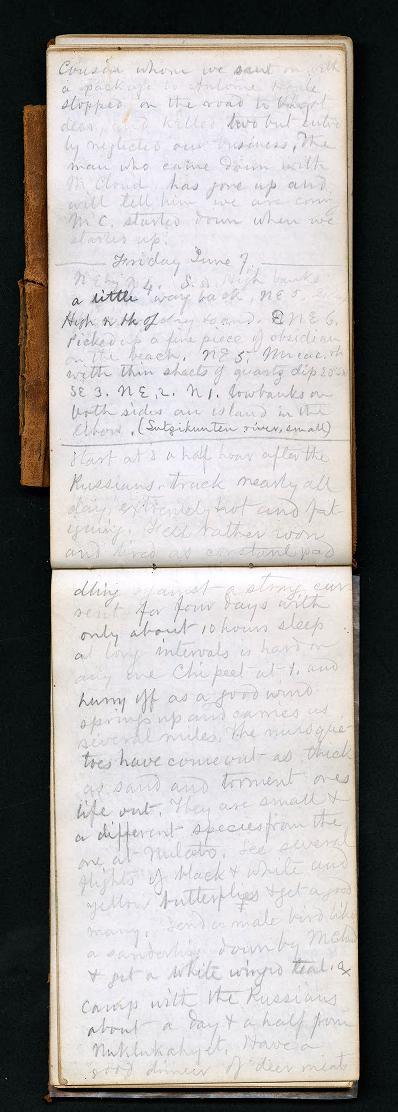 Cousin whom we sent on with
a package to Antoine
stopped on the road to
deer, and killed two but entire
ly neglected our business. The
man who came down with
McCloud has gone up and
will tell him we are coming
Mc C. started down when we
started up.
Friday June 7.
N 4. S. High banks
a little way back, NE 5.
High of and. NE 6.
Picked up a fine piece of obsidian
on the beach. NE 5.
with thin sheets of quartz dip 20°
SE 3. NE, 2. N 1. low banks on
both sides an island in the
(Sutzikunten river, small)
Start at 8 a half hour after the
Russians. track nearly all
day, extremely hot and fat-
iguing. Feel rather worn
and tired as constant pad
dling against a strong cur
rent for four days with
only about 10 hours sleep
at long intervals is hard on
any one Chipeet at 1. and
hurry off as a good wind
springs up and carries us
several miles. The musque
toes have come out as thick
as sand and torment ones
life out. They are small &
a different species from the
one at Nulato. See several
flights of black & white and
yellow butterflies & get a good
many. Send a male bird like
a sanderling down by McCloud
& get a white winged teal.
camp with the Russians
about a day & a half from
Nuklukahyet. Have a
good dinner of deer meat